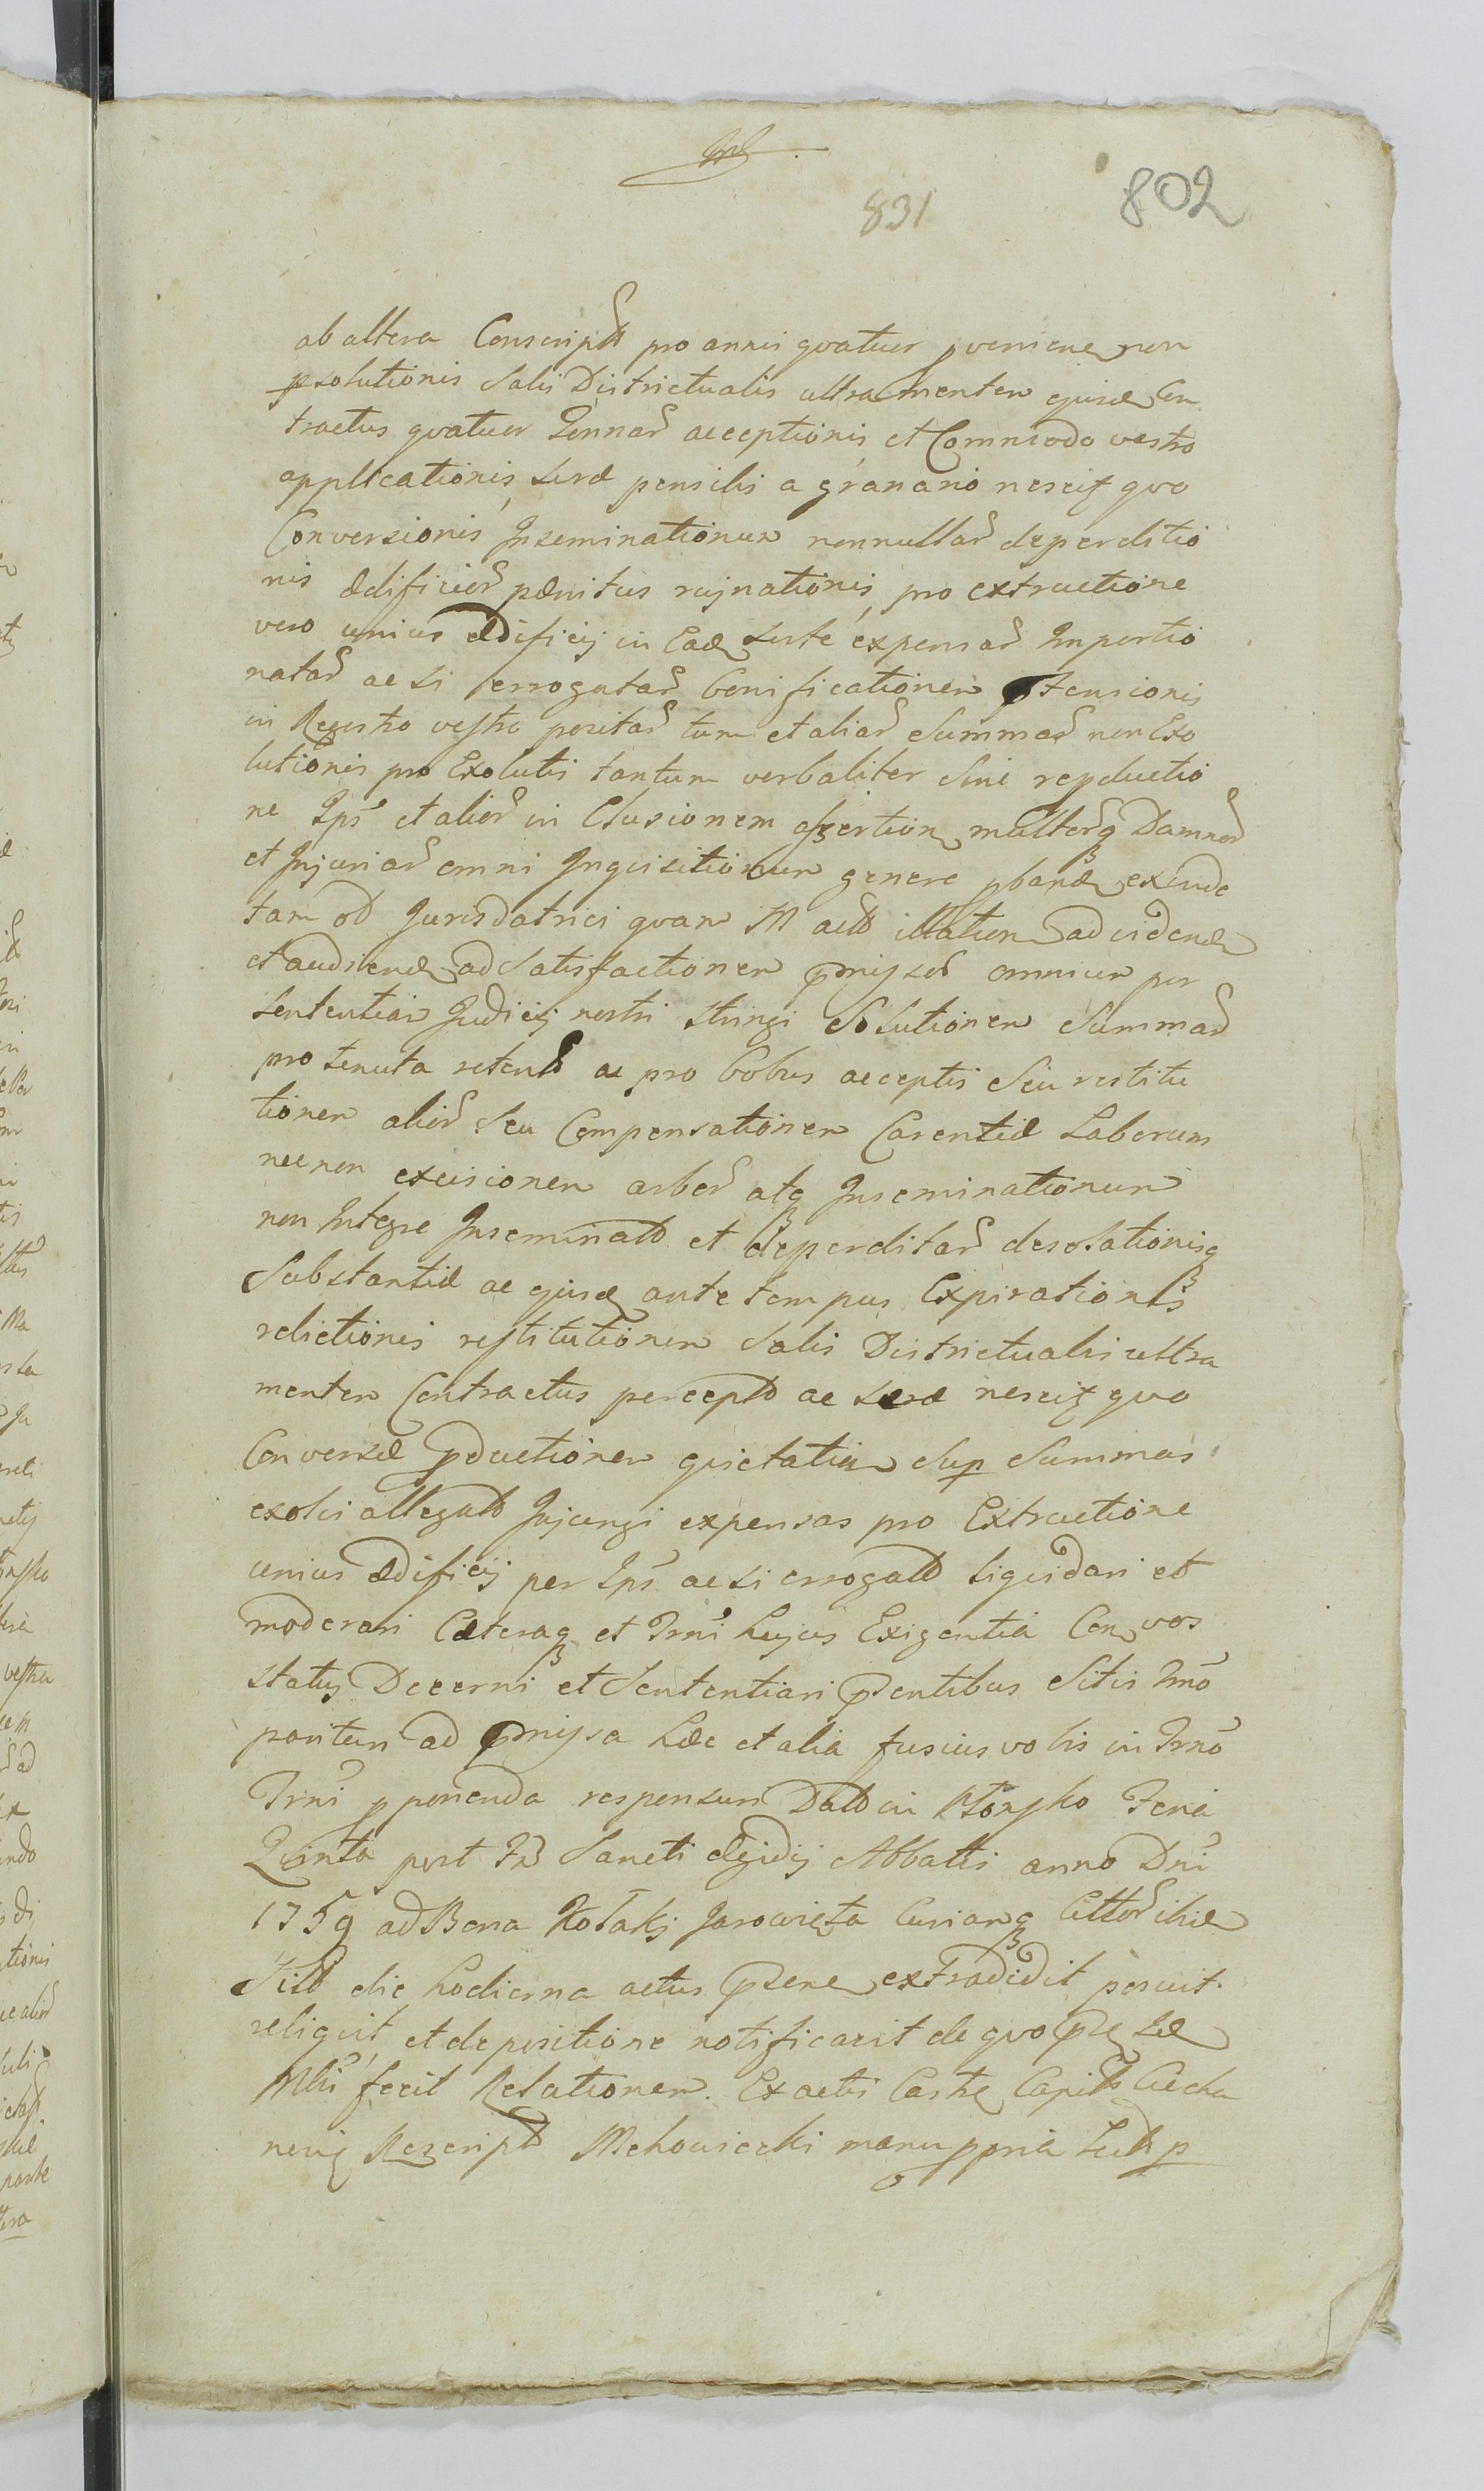 831
802
ab altera Conscript pro annis qvatuor provenien non
psolutionis Salis Districtualis ultra mentem ejusd Con
tractus qvatuor Tonnar acceptionis et Commodo vestro
applicationis, seræ pensilis a granario nescitq qvo
Conversionis, Inseminationum nonnullar deperditio
nis ædificior pænitus rujnationis, pro extructione
vero unius ædificij in Ead Sorte expensar Inportio
natar ac si errogatar bonificationem ptensionis
in Regestro vestro positar tum et aliar Summar non Exo
lutionis pro Exolutis tantum verbaliter Sine repductio
ne Ips et alior in Clusionem assertion multorq Damnor
et Injuriar omni Inqvisitionum genere pband exinde
tam od Jurisdatrici qvam M actt illator ad videnđ
et audiend ad Satisfactionem pmissor omnium per
Sententiam Judicij nostri stringi Solutionem Summar
pro tenuta retent ac pro bobus acceptis Seu restitu
tionem alior Seu Compensationem Carentiæ Laborum
necnon excisionem arbor atq Inseminationum
non Integre Inseminat et deperditar desolationisq
Substantiæ ac ejusd ante tempus Expirationis
relictionis restitutionem Salis Districtualis ultra
mentem Contractus percept ac seræ nescitq qvo
Conversæ pductionem qvietatiar Sup Summas
exolvi allegat Injungi expensas pro Extructione
unius ædificij per Ips ac si errogat liqvidari et
moderari Cæteraq et Trni hujus Exigentia Con vos
statuj Decerni et Sententiari psentibus Sitis Tmo
paritur ad pmissa hæc et alia fusius vobis in Trno
Trni pponenda responsuri Datt in Feria
Qvinta post Fm Sancti Ægidij Abbatis anno Dni
1759 ad Bona Kołaki Jarowięta Curiamq Cittor ibid
Sit die hodierna actus psen extradidit posuit
reliqvit, et depositione notificavit de qvo pr se
Mltri fecit Relationem. Ex actis Castr Capit Ciecha
novi Rescript Mchowiecki manu ppria